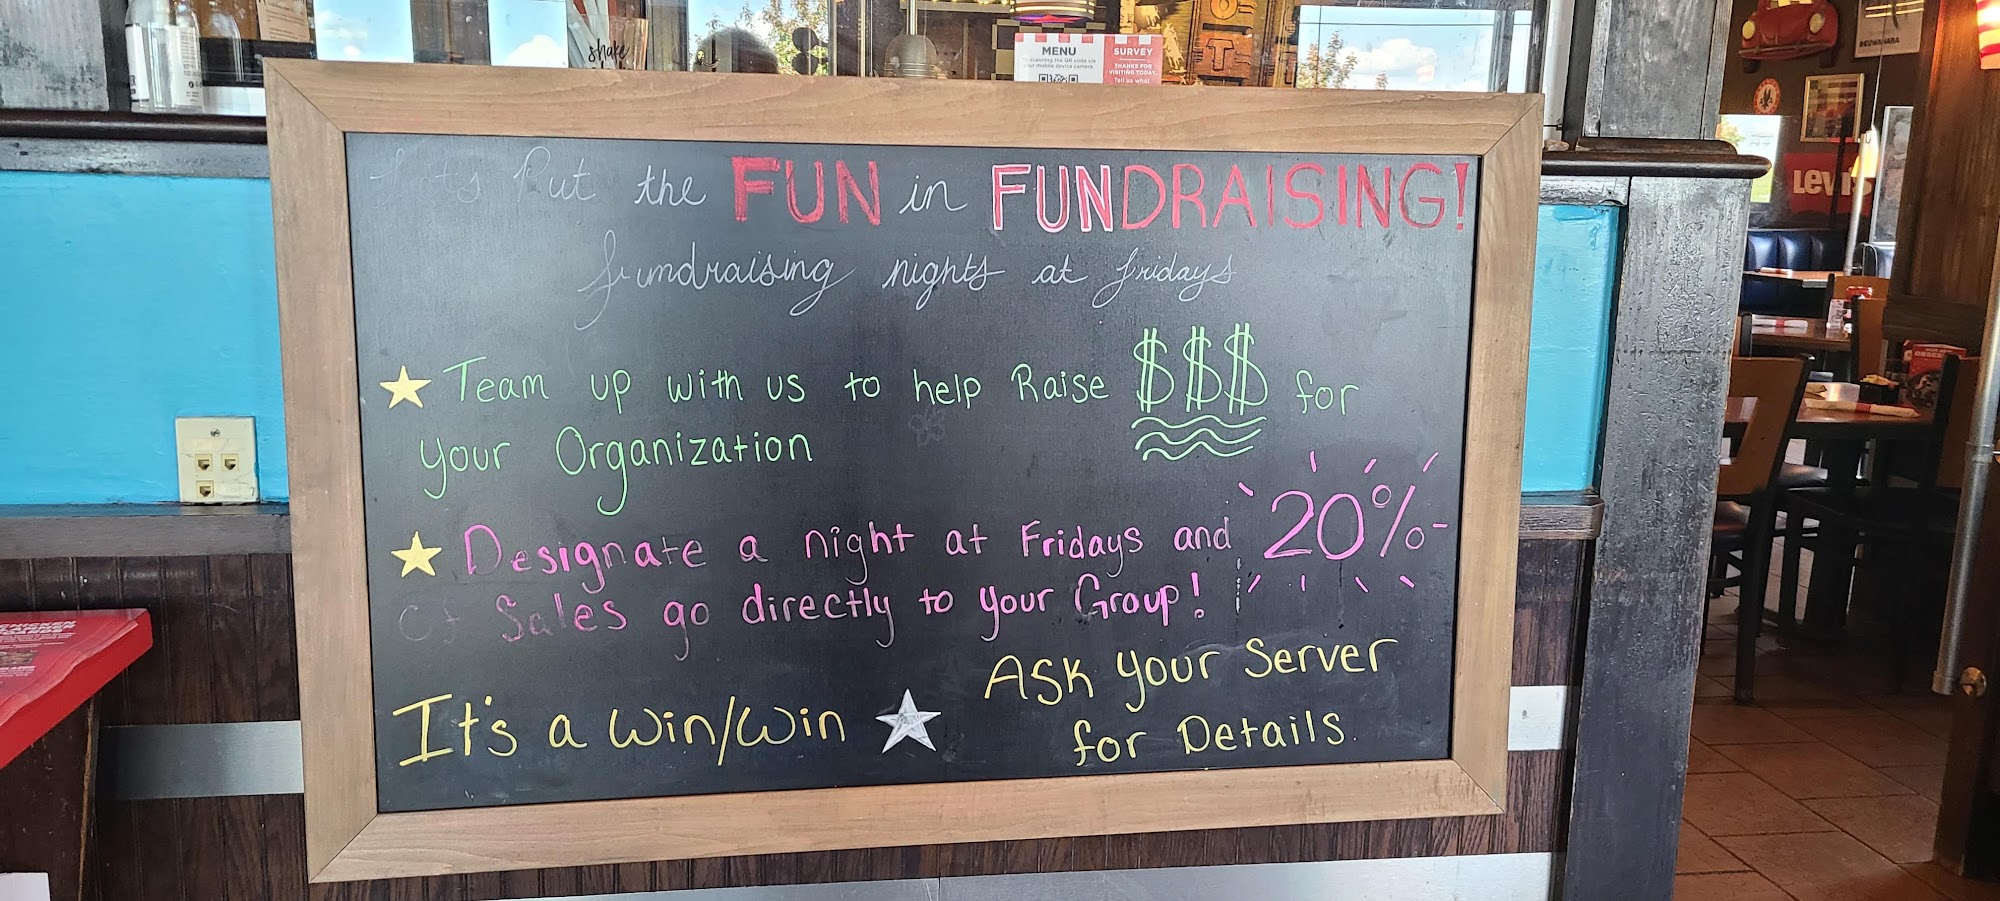 Let's Put the FUN in FUNDRAISING!
fundraising nights at fridays
Team up with us to help Raise $$$ for
your Organization
Designate a night at Fridays and 20%
Of Sales go directly to your Group!
It's a win/win
Ask your Server
for Details.
shake
MENU
SURVEY
THANKS FOR
VISITING TODAY.
Tell us what
LEVI'S